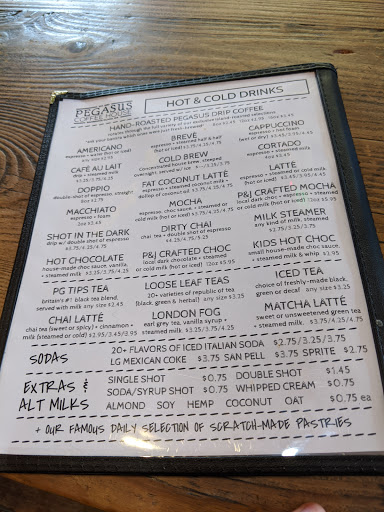 PEGASUS
COFFEE HOUSE
HOT & COLD DRINKS
HAND-ROASTED PEGASUS DRIP COFFEE
rotates through the full variety of our
AMERICANO
espresso + water (hot or iced)
any size $2.95
CAFÉ AU LAIT
drip + steamed milk
$3.25/3.75/4.25
DOPPIO
double-shot of espresso, straight
MACCHIATO
espresso + foam
SHOT IN THE DARK
drip w/ double shot of espresso
HOT CHOCOLATE
house-made choc sauce, vanilla,
+ steamed milk
BREVÉ
espresso + steamed half & half
COLD BREW
Concentrated house brew, steeped
overnight, served w/ ice
FAT COCONUT LATTÉ
espresso + steamed coconut milk +
dollop of coconut oil
MOCHA
espresso, choc sauce, + steamed or
cold milk (hot or iced) $3.75/4.25/4.75
DIRTY CHAI
chai tea + double shot of espresso
$4.25/4.75/5.25
P&J CRAFTED CHOC
local dark chocolate + steamed
or cold milk (hot or iced) 12oz $5.95
CAPPUCCINO
espresso + hot foam
(wet or dry) $3.45/3.95/4.45
CORTADO
espresso + steamed milk
LATTÉ
espresso + steamed or cold milk
(hot or iced)
P&J CRAFTED MOCHA
local dark choc + espresso + steamed
or cold milk (hot or iced) 12oz $6.95
MILK STEAMER
any kind of milk, steamed
KIDS HOT CHOC
small house-made choc sauce,
+ steamed milk & whip $2.95
PG TIPS TEA
britain's #1 black tea blend,
served with milk any size $2.45
CHAI LATTÉ
chai tea (sweet or spicy) + cinnamon +
milk (steamed or cold) $2.95/3.45/3.95
LOOSE LEAF TEAS
20+ varieties of republic of tea
(black, green & herbal) any size $3.25
LONDON FOG
earl grey tea, vanilla syrup +
steamed milk $3.25/3.75/4.25
ICED TEA
choice of freshly-made black,
green or decaf any size $3.25
MATCHA LATTÉ
sweet or unsweetened green tea
+ steamed milk $3.75/4.25/4.75
SODAS
20+ FLAVORS OF ICED ITALIAN SODA $2.75/3.25/3.75
LG MEXICAN COKE $3.75 SAN PELL $3.75 SPRITE $2.75
EXTRAS & ALT MILKS
SINGLE SHOT $0.75 DOUBLE SHOT $1.45
SODA/SYRUP SHOT $0.75 WHIPPED CREAM $0.75
ALMOND SOY HEMP COCONUT OAT $0.75 ea
+ OUR FAMOUS DAILY SELECTION OF SCRATCH-MADE PASTRIES